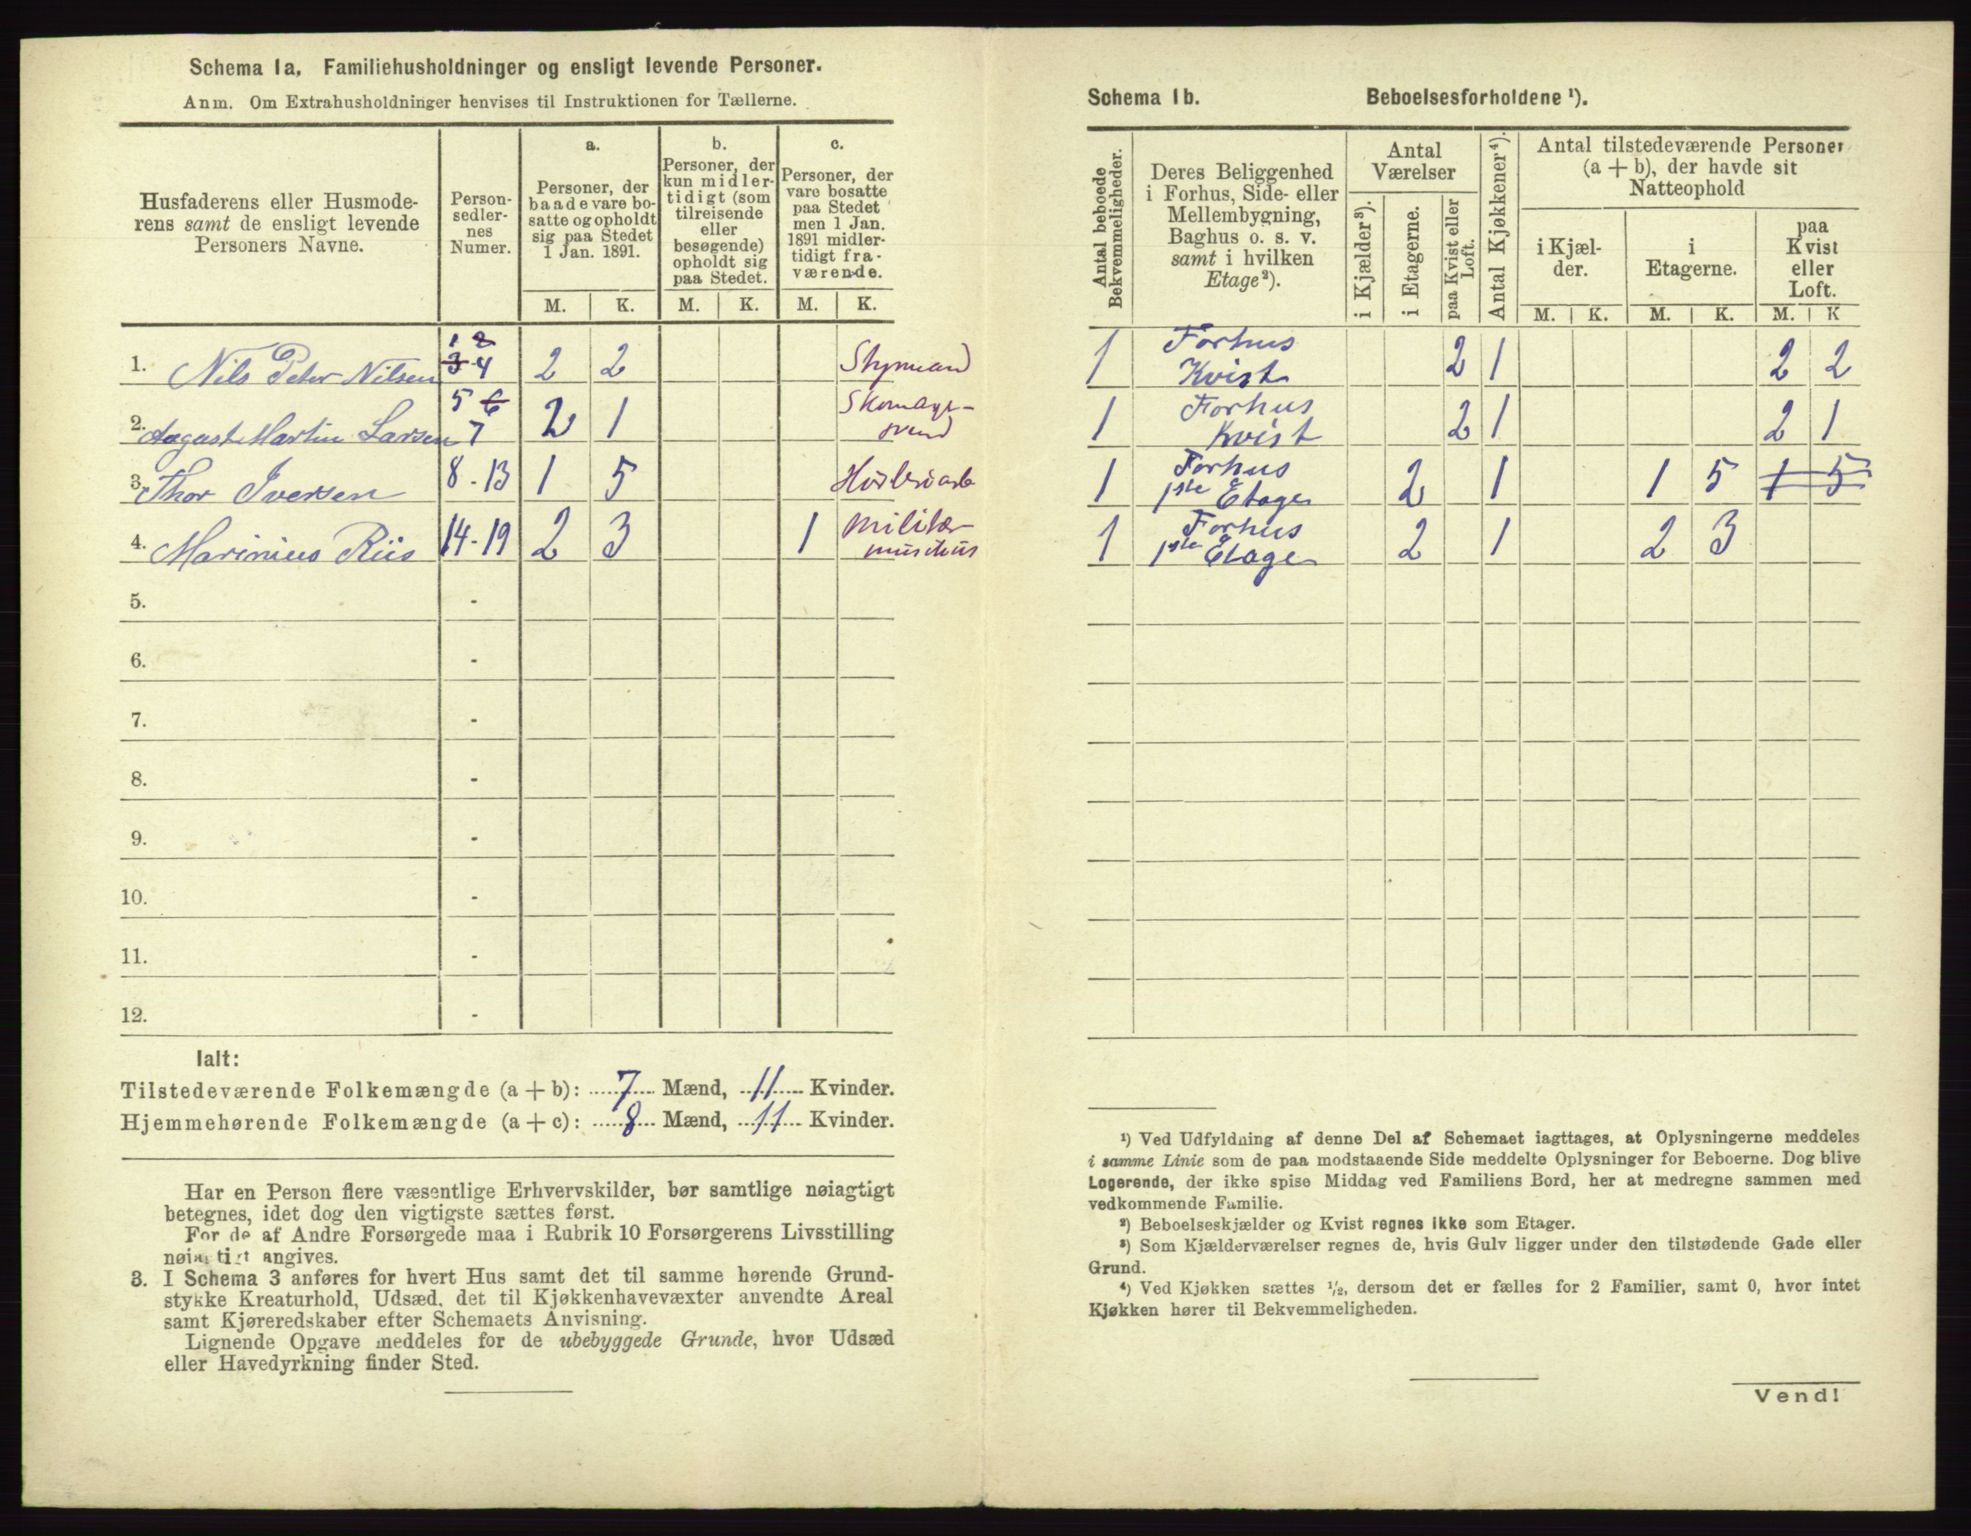 Schema 1a. Familiehusholdninger og ensligt levende Personer.
Anm. Om Extrahusholdninger henvises til Instruktionen for Tællerne.
Husfaderens eller Husmode-
rens samt de ensligt levende
Personers Navne.
Person-
sedler-
nes
Numer.
a.
Personer, der
baade vare bo-
satte og opholdt
sig paa Stedet
1 Jan. 1891.
b.
Personer, der
kun midler-
tidigt (som
tilreisende
eller
besøgende)
opholdt sig
paa Stedet.
c.
Personer, der
vare bosatte
paa Stedet
men 1 Jan.
1891 midler-
tidigt fra-
værende.
M. K. M. K. M. K.
1. Nils Peter Nilsen 1 2 3-4 2 2 Styrmand
2. August Martin Larsen 5 6 7 2 1 Skomager-
svend
3. Thor Iversen 8-13 1 5
4. Marinius Riis 14-19 2 3 1 Militær-
musikus
5. -
6. -
7. -
8. -
9. -
10. -
11. -
12. -
Ialt:
Tilstedeværende Folkemængde (a + b): 7 Mænd, 11 Kvinder.
Hjemmehørende Folkemængde (a + c): 8 Mænd, 11 Kvinder.
Har en Person flere væsentlige Erhvervskilder, bør samtlige nøiagtigt
betegnes, idet dog den vigtigste sættes først.
For de af Andre Forsørgede maa i Rubrik 10 Forsørgerens Livsstilling
nøiagtigt angives.
3. I Schema 3 anføres for hvert Hus samt det til samme hørende Grund-
stykke Kreaturhold, Udsæd, det til Kjøkkenhavevæxter anvendte Areal
samt Kjøreredskaber efter Schemaets Anvisning.
Lignende Opgave meddeles for de ubebyggede Grunde, hvor Udsæd
eller Havedyrkning finder Sted.
Schema 1b. Beboelsesforholdene ¹).
Antal beboede
Bekvemmeligheder.
Deres Beliggenhed
i Forhus, Side- eller
Mellembygning,
Baghus o. s. v.
samt i hvilken
Etage²).
Antal
Værelser
i Kjælder³).
i Etagerne.
paa Kvist eller
Loft.
Antal Kjøkkener⁴).
Antal tilstedeværende Personer
(a + b), der havde sit
Natteophold
i Kjæl-
der.
i
Etagerne.
paa
Kvist
eller
Loft.
M. K. M. K. M. K
1 Forhus
Kvist 2 1 2 2
1 Forhus
Kvist 2 1 2 1
1 Forhus
1ste Etage 2 1 1 5 1 5
1 Forhus
1ste Etage 2 1 2 3
¹) Ved Udfyldning af denne Del af Schemaet iagttages, at Oplysningerne meddeles
i samme Linie som de paa modstaaende Side meddelte Oplysninger for Beboerne. Dog blive
Logerende, der ikke spise Middag ved Familiens Bord, her at medregne sammen med
vedkommende Familie.
²) Beboelseskjælder og Kvist regnes ikke som Etager.
³) Som Kjælderværelser regnes de, hvis Gulv ligger under den tilstødende Gade eller
Grund.
⁴) Ved Kjøkken sættes ¹/₂, dersom det er fælles for 2 Familier, samt 0, hvor intet
Kjøkken hører til Bekvemmeligheden.
Vend!